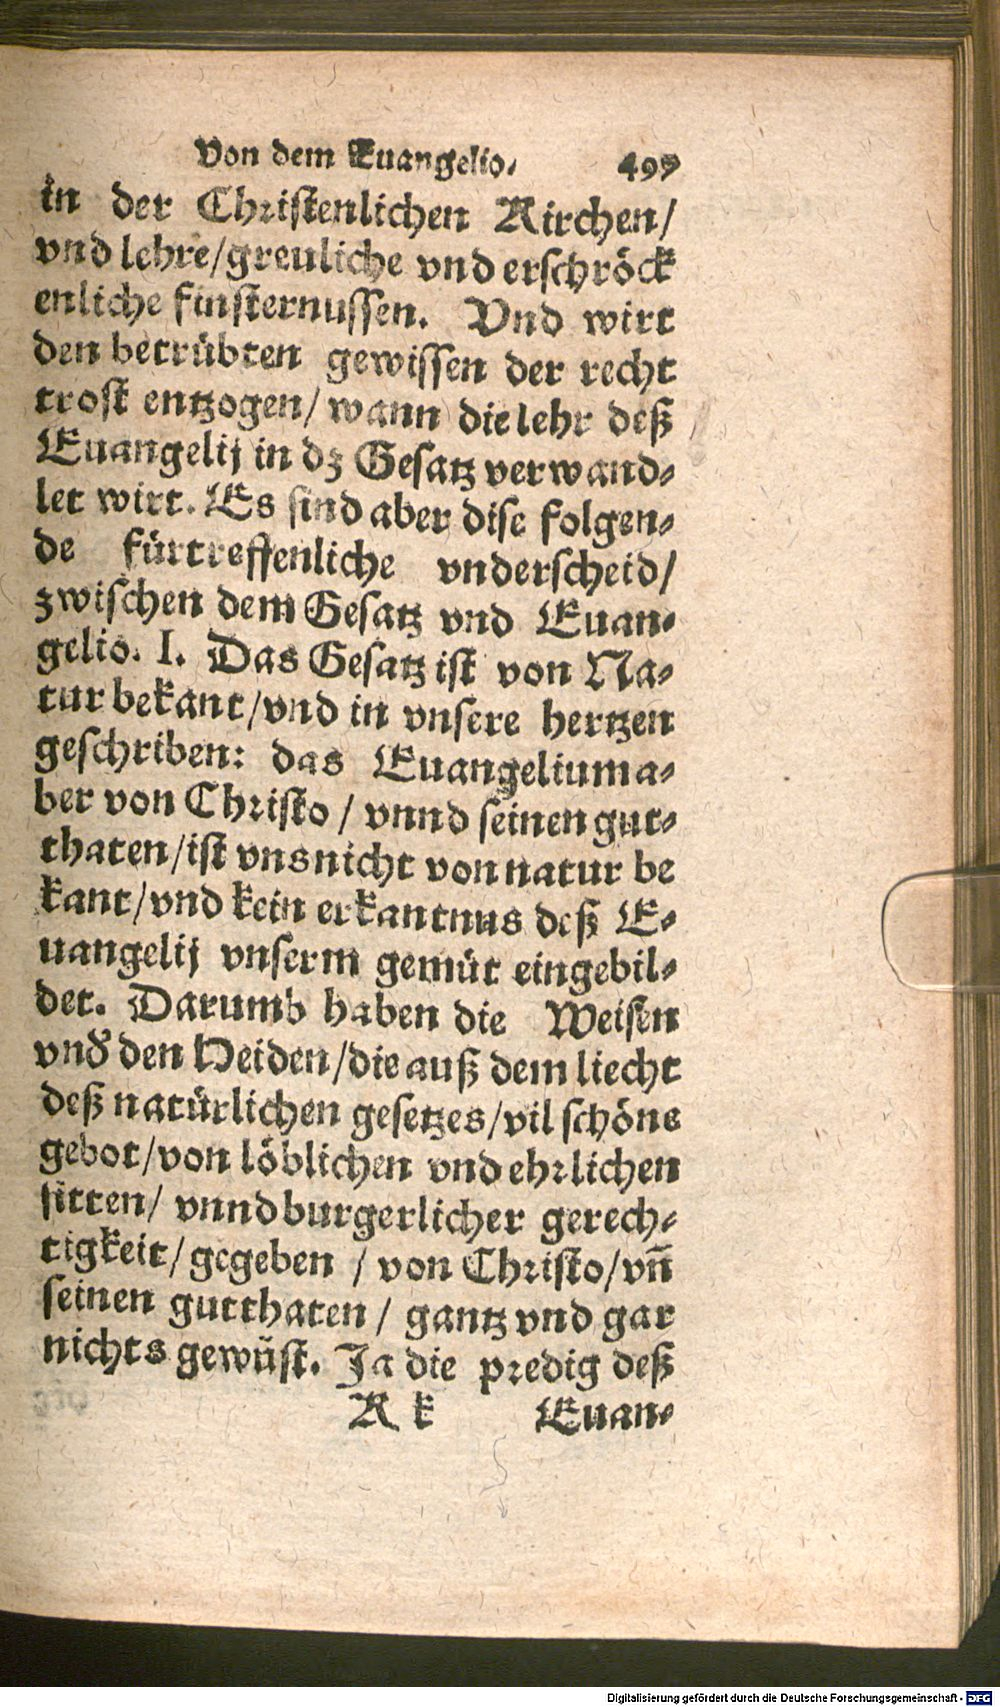 Von dem Euangelio. 497
in der Christenlichen Kirchen/
vnd lehre/greuliche vnd erschröck
enliche finsternussen. Vnd wirt
den betrübten gewissen der recht
trost entzogen/ wann die lehr deß
Euangelij in dz Gesatz verwand-
let wirt. Es sind aber dise folgen-
de fürtreffenliche vnderscheid/
zwischen dem Gesatz vnd Euan-
gelio. I. Das Gesatz ist von Na-
tur bekant/vnd in vnsere hertzen
geschriben: das Euangelium a-
ber von Christo / vnnd seinen gut-
thaten/ist vns nicht von natur be
kant/vnd kein erkantnus deß E-
uangelij vnserm gemüt eingebil-
det. Darumb haben die Weisen
vnd̕ den Heiden/die auß dem liecht
deß natürlichen gesetzes/vil schöne
gebot/von löblichen vnd ehrlichen
sitten/ vnnd burgerlicher gerech-
tigkeit/gegeben / von Christo/vn̄
seinen gutthaten / gantz vnd gar
nichts gewüst. Ja die predig deß
K k Euan-
Digitalisierung gefördert durch die Deutsche Forschungsgemeinschaft - DFG